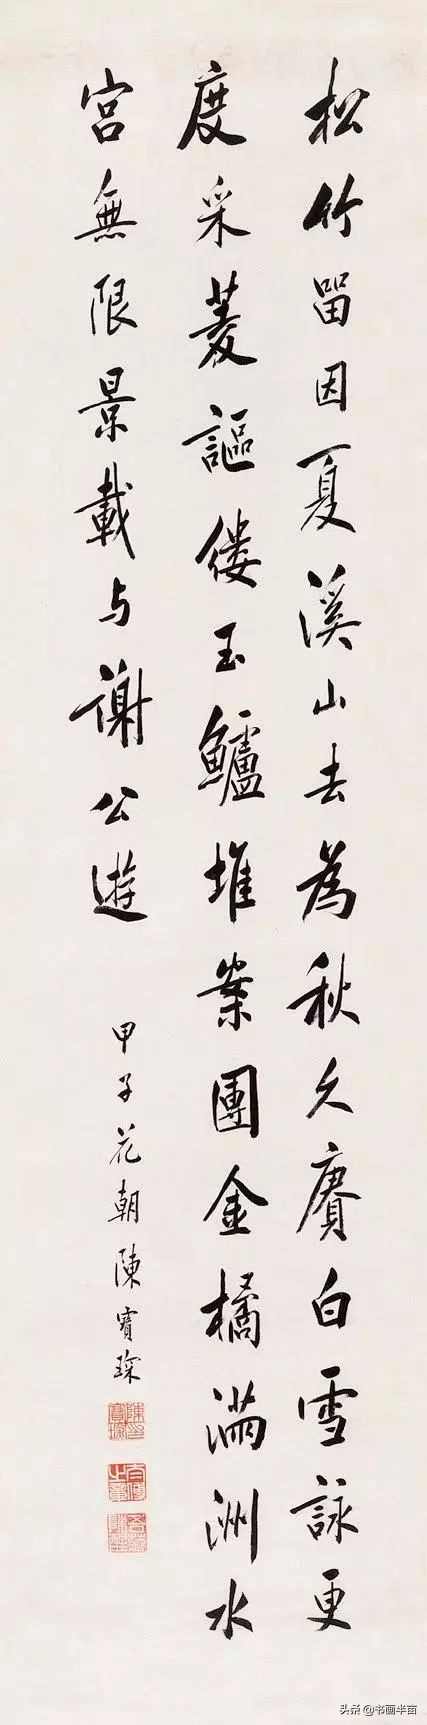 松竹留因夏溪山去為秋久賡白雪詠更
度采菱謳縷玉鱸堆案團金橘滿洲水
宮無限景載与謝公遊
甲子花朝陳寶琛
陳印寶琛
太傅之章
头条 @书画半亩